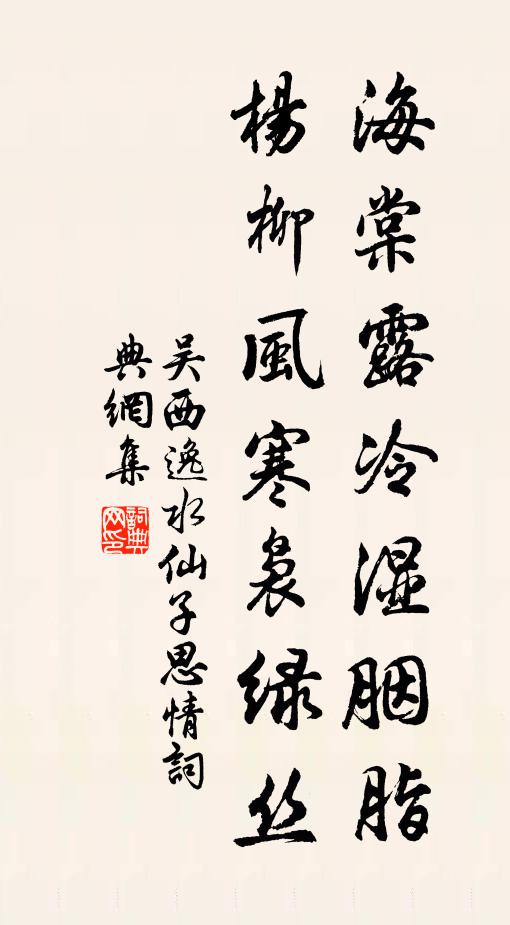 海棠露冷湿胭脂
楊柳風寒裊绿丝
吴西逸水仙子思情詞
典網集
詞典网印